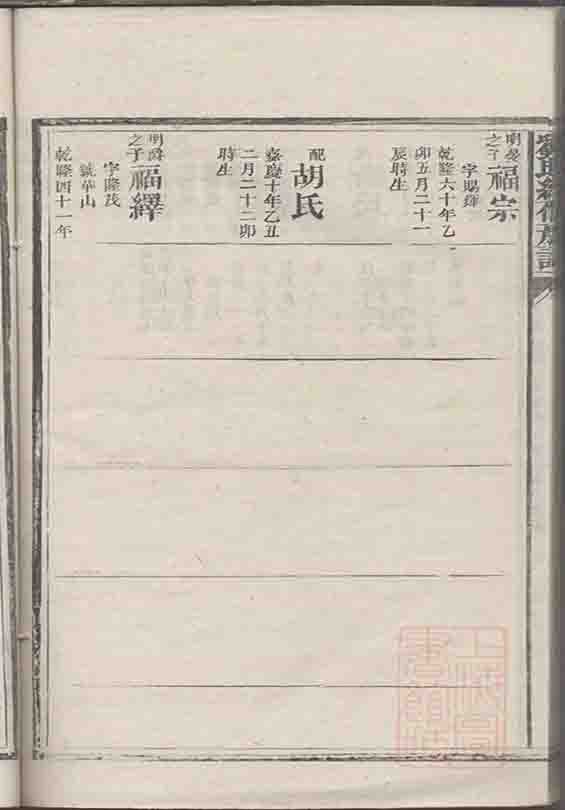 劉氏續修族譜
明爻之子
福宗
字賜鐸
乾隆六十年乙
卯五月二十一
辰時生
配
胡氏
嘉慶十年乙丑
二月二十二卯
時生
明爵之子
福繹
字隆茂
號華山
乾隆四十一年
上海圖書館藏